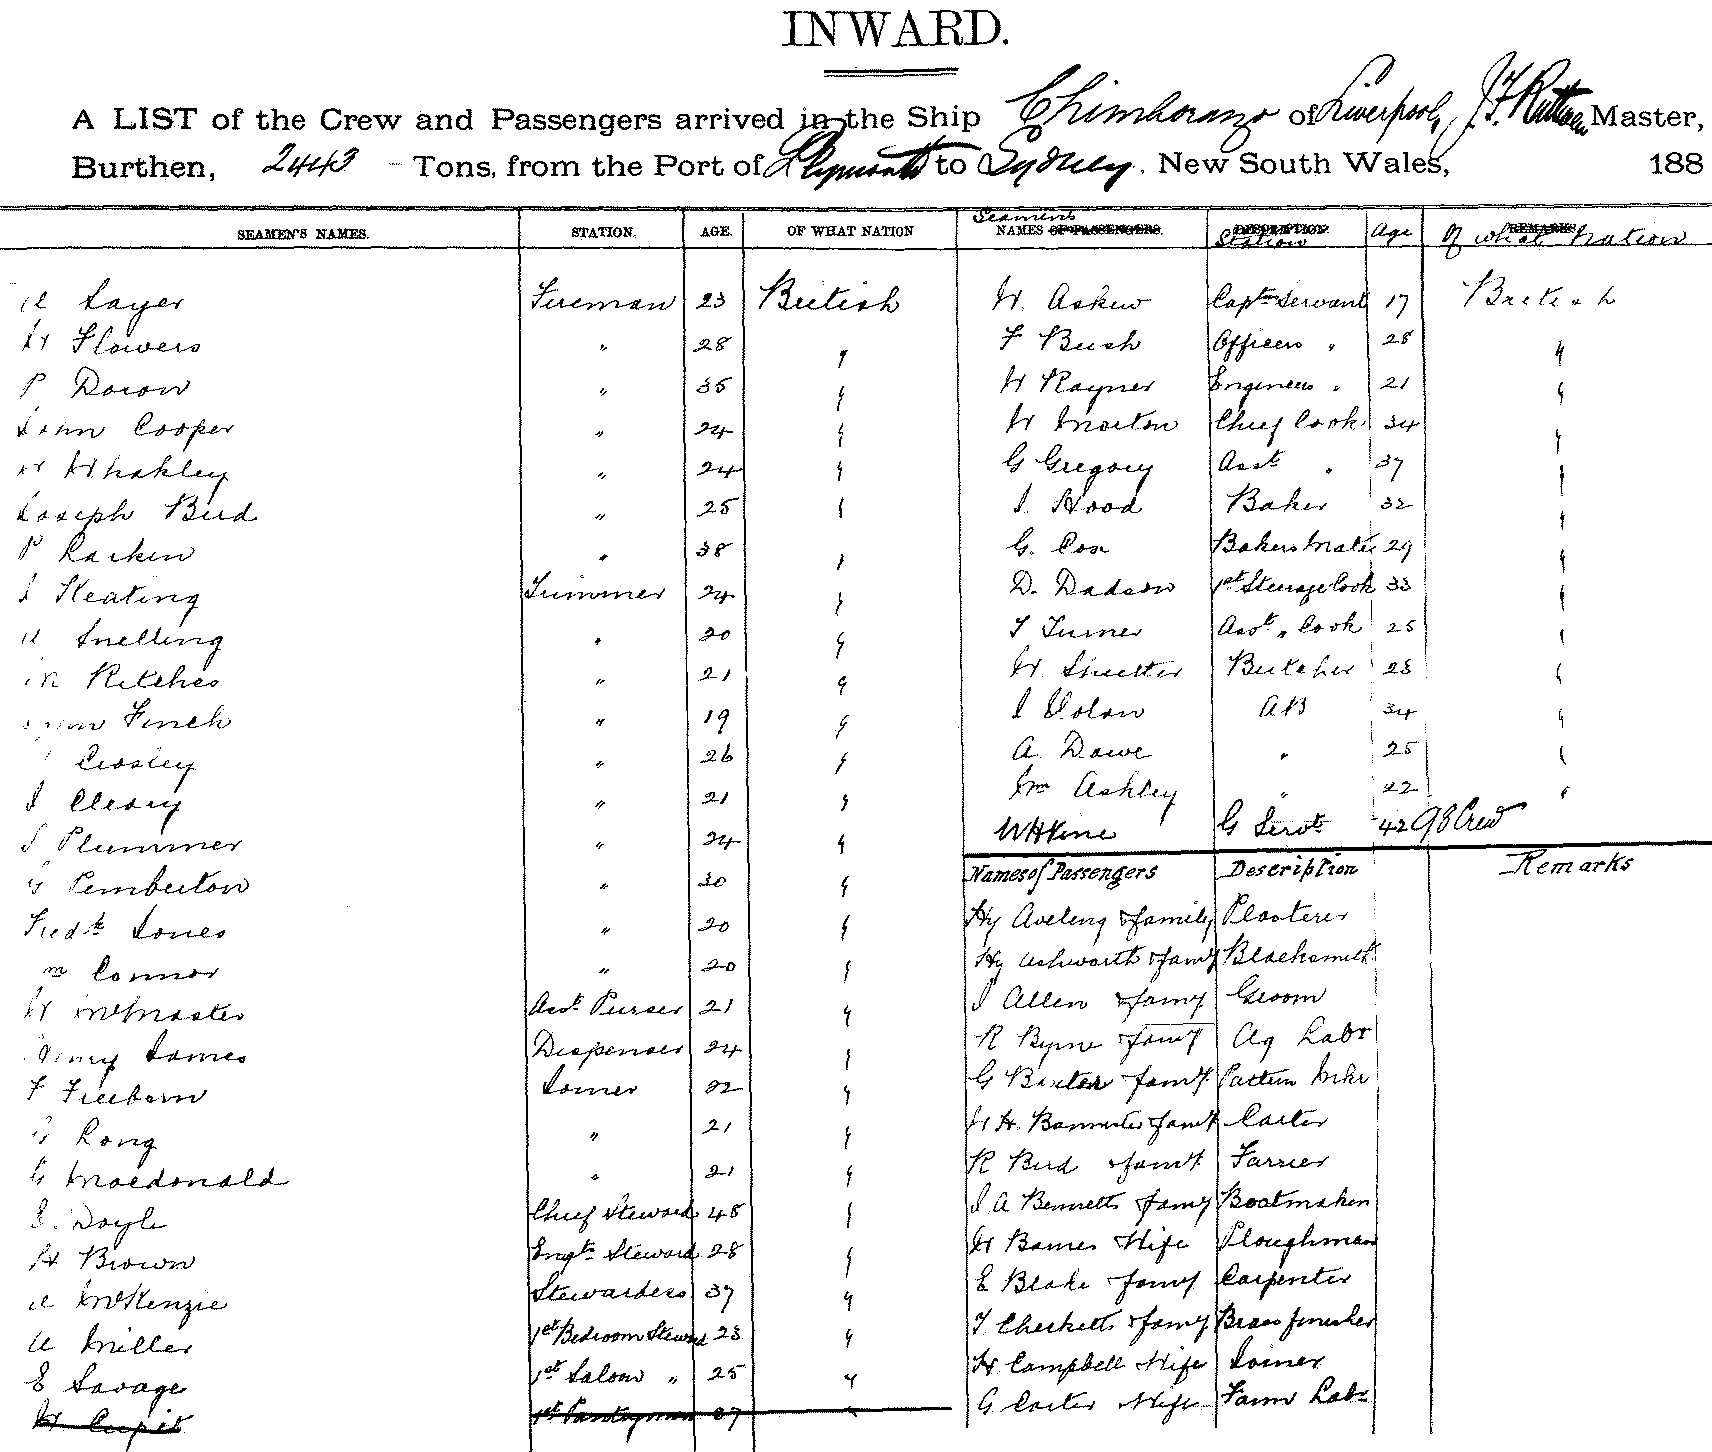 INWARD.
A LIST of the Crew and Passengers arrived in the Ship Chimborazo of Liverpool, J. F. Ruthven Master,
Burthen, 2443 Tons, from the Port of Plymouth to Sydney. New South Wales, 188
SEAMEN'S NAMES. STATION. AGE. OF WHAT NATION Seamens NAMES OF PASSENGERS. DESCRIPTION. Station Age REMARKS Of what Nation
Sayer Fireman 23 British W. Askew Captn Servant 17 British
W Flowers " 28 " F Bush Officers " 28 "
P Doron " 35 " W Rayner Engineers " 21 "
John Cooper " 24 " W Morton Chief Cook 34 "
W Whakley " 24 " G Gregory Asst " 37 "
Joseph Bird " 25 " J Hood Baker 32 "
P Larkin " 38 " G. Cox Bakers Mate 29 "
J Keating Trimmer 24 " D. Dadson 1st Steerage Cook 33 "
A Snelling " 20 " T Turner Asst " Cook 25 "
Ritches " 21 " W. Butcher 28 "
Finch " 19 " J Dolan AB 34 "
Crosley " 26 " A. Dawe " 25 "
J Cleary " 21 " Wm Ashley " 22 "
J Plummer " 24 " W H Vine G Servt 42 98 Crew
Names of Passengers Description Remarks
G Pemberton " 30 "
Hy Aveling & family Plasterer
Fredk Jones " 20 "
Hy Ashworth & famy Blacksmith
m Connor " 20 "
J Allen & famy Groom
W McMaster Asst Purser 21 "
R Byrne famy Ag Labr
Henry James Dispenser 24 "
G Baxter famy Pattern Mkr
F Freeborn Joiner 22 "
W H. Bannister famy Carter
Long " 21 "
R Bird famy Farrier
G Macdonald " 21 "
J A Bennetts famy Boatmaker
J. Doyle Chief Steward 45 "
W Barnes Wife Ploughman
H Brown Engrs Steward 28 "
E Blake famy Carpenter
A McKenzie Stewardess 37 "
T Checketts & famy Brass finisher
A Miller 1st Bedroom Steward 23 "
H Campbell Wife Joiner
E Savage 1st Saloon " 25 "
G Carter Wife Farm Labr
W Cupit 1st Pantryman 27 "